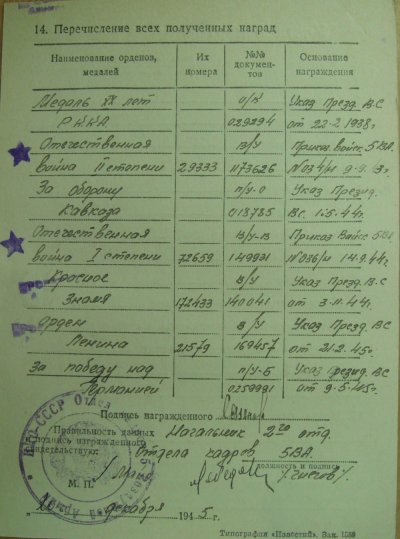 14. Перечисление всех полученных наград
Наименование орденов, медалей
Их номера
№№ документов
Основание награждения
Медаль XX лет О/К Указ Презд. В.С.
РККА 029294 от 22-2-1938г
Отечественная В/У Приказ. Войск. 5 ВА.
война II степени 29333 №034/н 9-9-43г.
За Оборону П/У-О Указ Презид.
Кавказа 018785 ВС. 1-5-44г.
Отечественная В/У-В Приказ Войск 5ВА.
война I степени 72659 149931 №036/н 14-9-44г
Красное В/У Указ Презд. В.С
Знамя 172433 140041 от 3-11-44г.
Орден В/У Указ Презд. ВС
Ленина 21579 169457 от 21-2-45г.
За победу над П/У-Б Указ Презид. ВС
Германией 0259991 от 9-5-45г.
Подпись награжденного
Правильность данных
и подпись награжденного
свидетельствую: Начальник 2го отд.
Отдела кадров 5ВА.
должность и подпись
М. П.
декабря 1945 г.
Типография «Известий». Зак. 1589